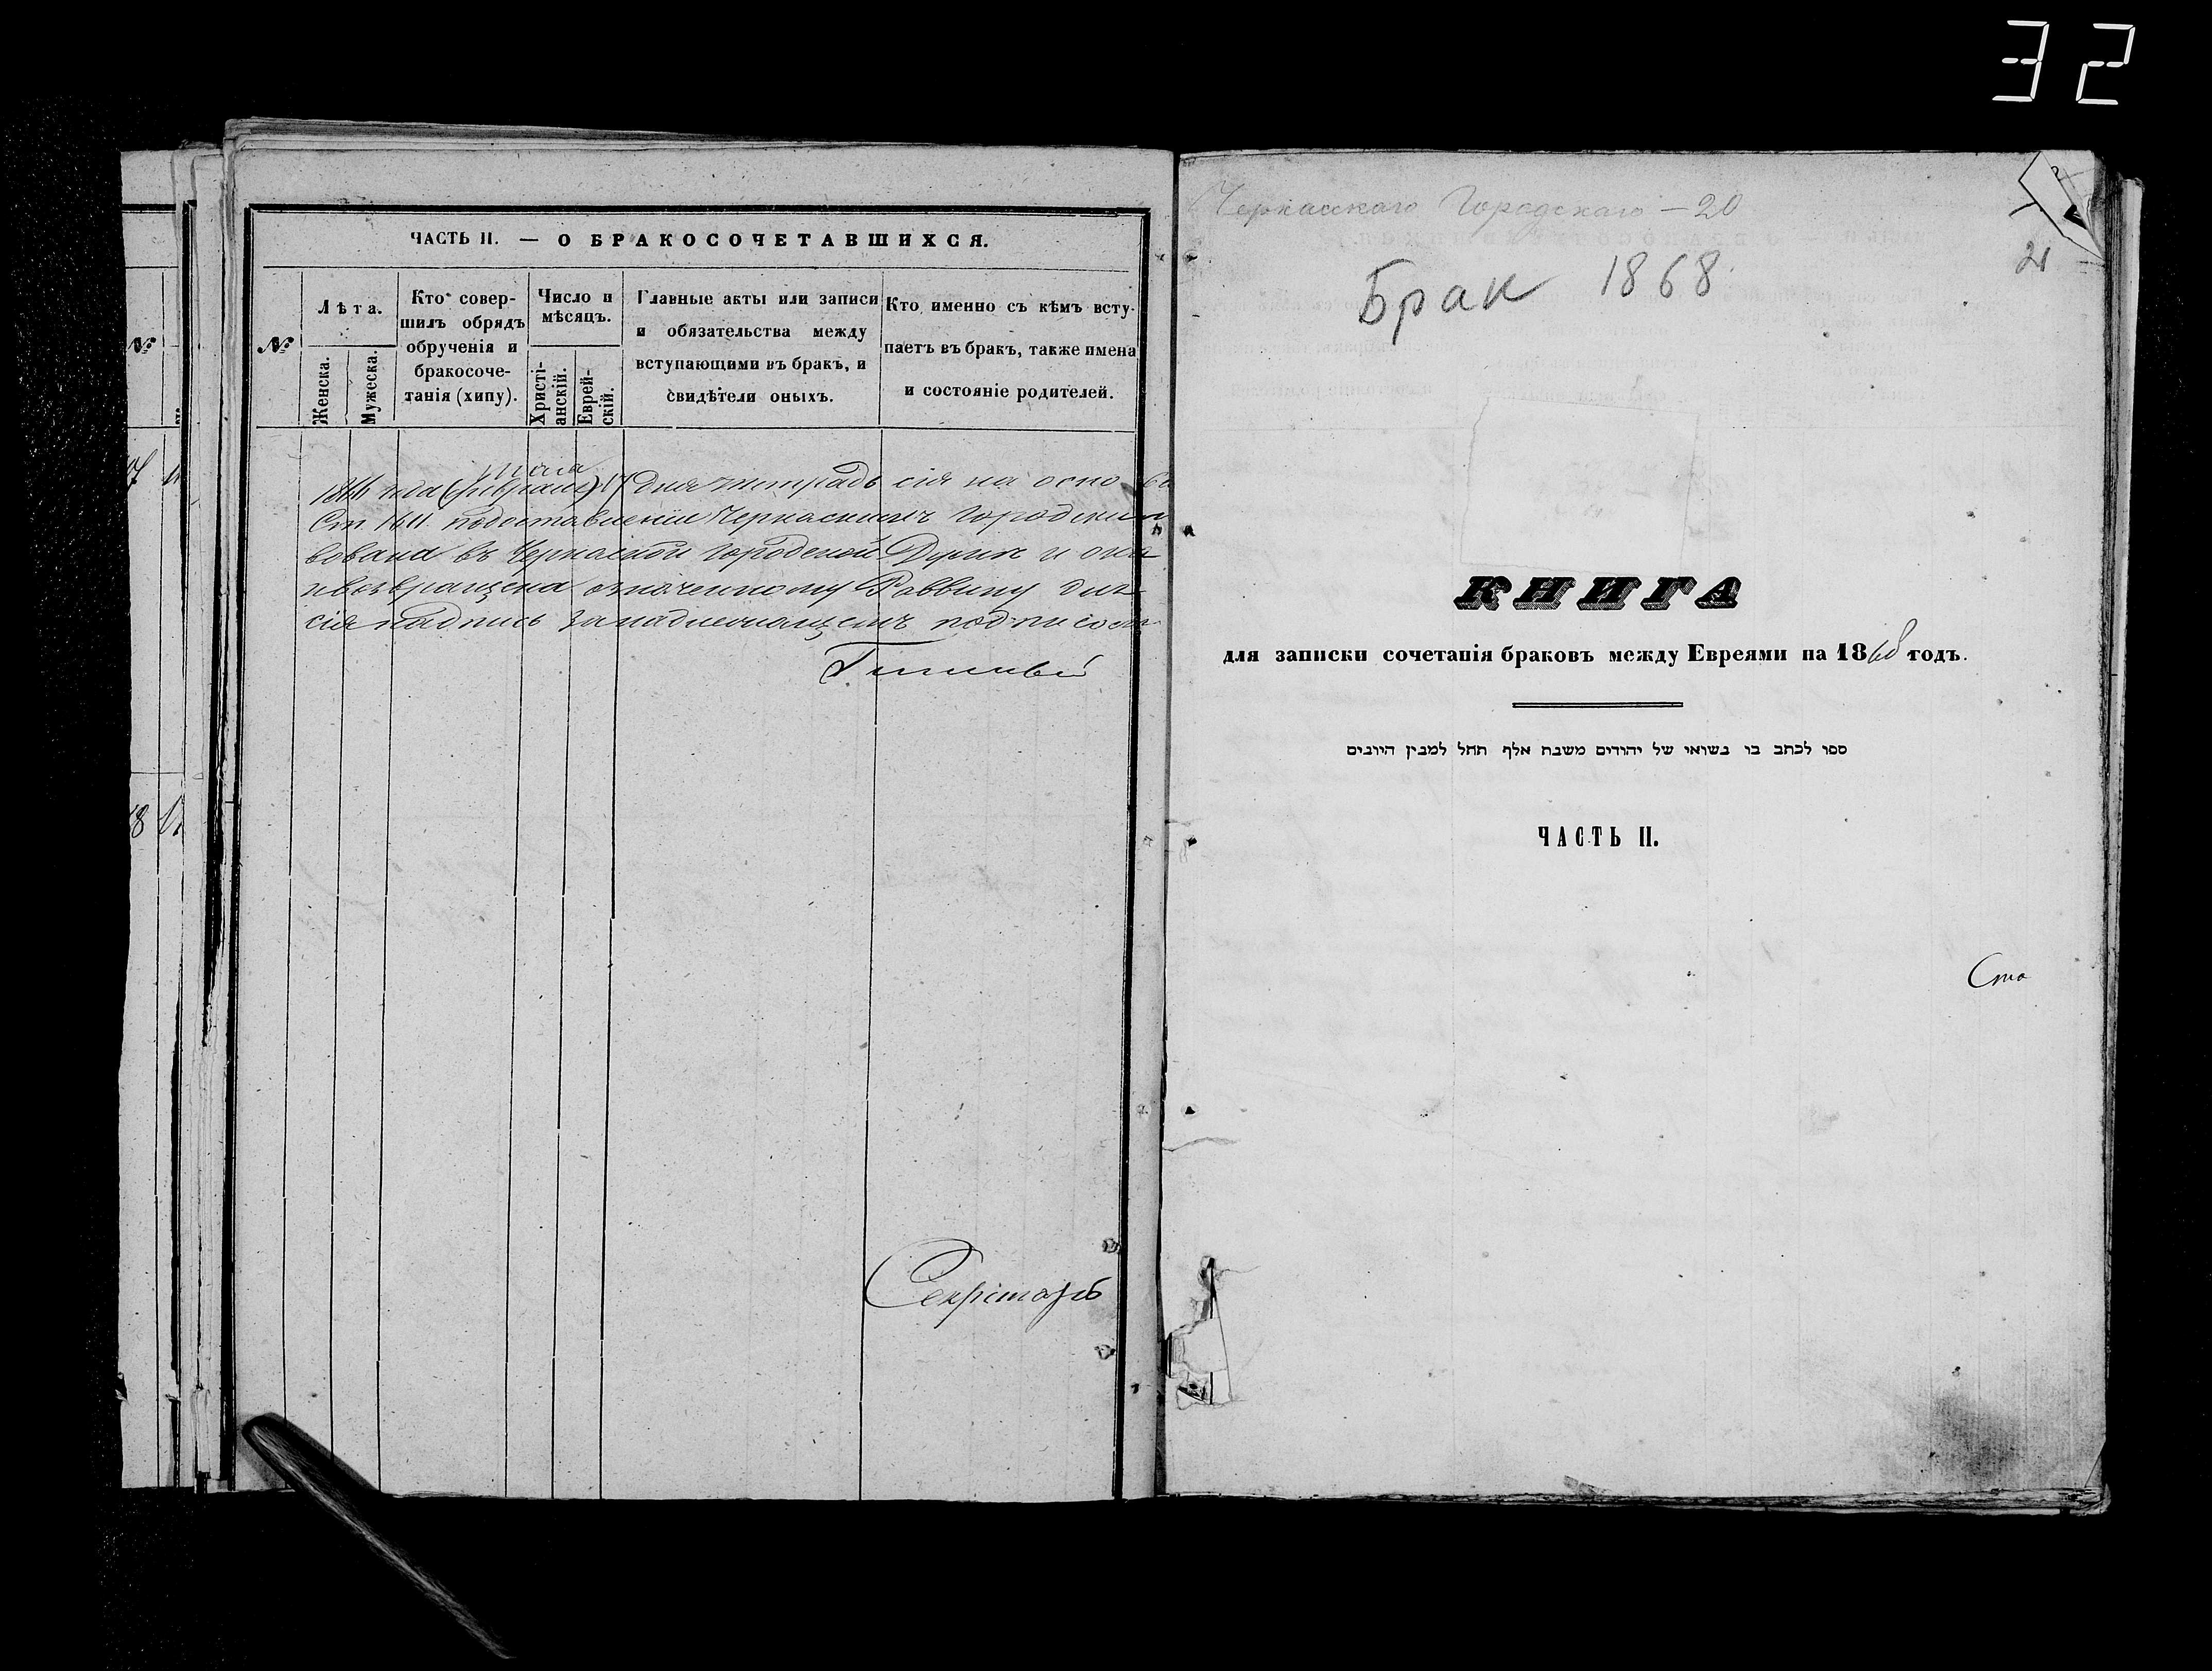 32
ЧАСТЬ II. — О БРАКОСОЧЕТАВШИХСЯ.
№
№
Лѣта.
Женска.
Мужеска.
Кто совер-
шилъ обрядъ
обрученія и
бракосоче-
танія (хипу).
Число и
мѣсяцъ.
Христі-
анскій.
Еврей-
скій.
Главные акты или записи
и обязательства между
вступающими въ бракъ, и
свидѣтели оныхъ.
Кто именно съ кѣмъ всту-
паетъ въ бракъ, также имена
и состояніе родителей.
года 17 дня тетрадь сія на осно
Ст 1611 Черкаскимъ Городским
вована въ Черкаской Городской Думѣ и
возвращена означенному Раввину
сія надпись за надлежащемъ подписом
Секретарь
Черкасскаго Городскаго — 20
21
Брак 1868
КНИГА
для записки сочетанія браковъ между Евреями на 1868 годъ.
ספר לכתב בו נשואי של יהודים משנת אלף תתל למנין היונים
ЧАСТЬ II.
Сто